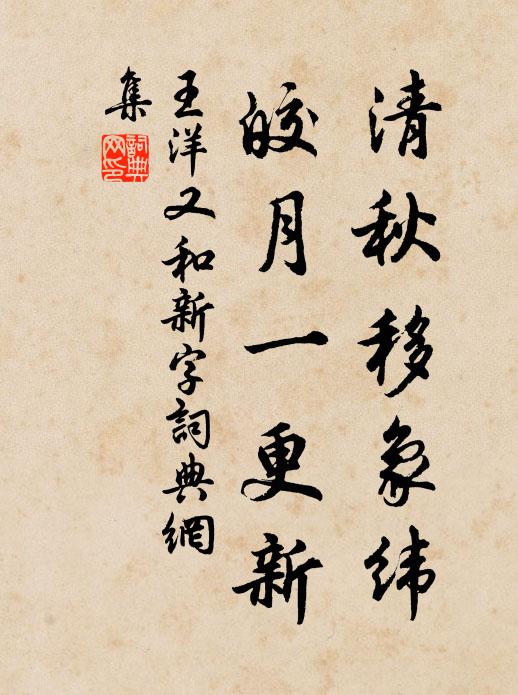 清秋移象緯
皎月一更新
王洋又和新字詞典網
集
詞典
网印